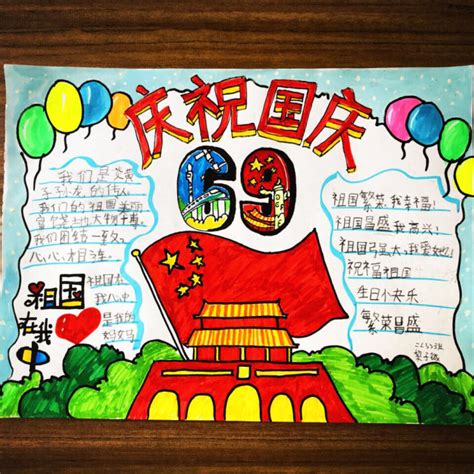 庆祝国庆
69
我们是炎黄
子孙龙的传人
我们的祖国美丽
富饶
我们团结一致
心心相连
祖国在我心中
祖国在
我心中
是我的
妈妈
祖国繁荣我幸福!
祖国昌盛我高兴!
祖国强大,我爱她!
祝福祖国
生日快乐
繁荣昌盛